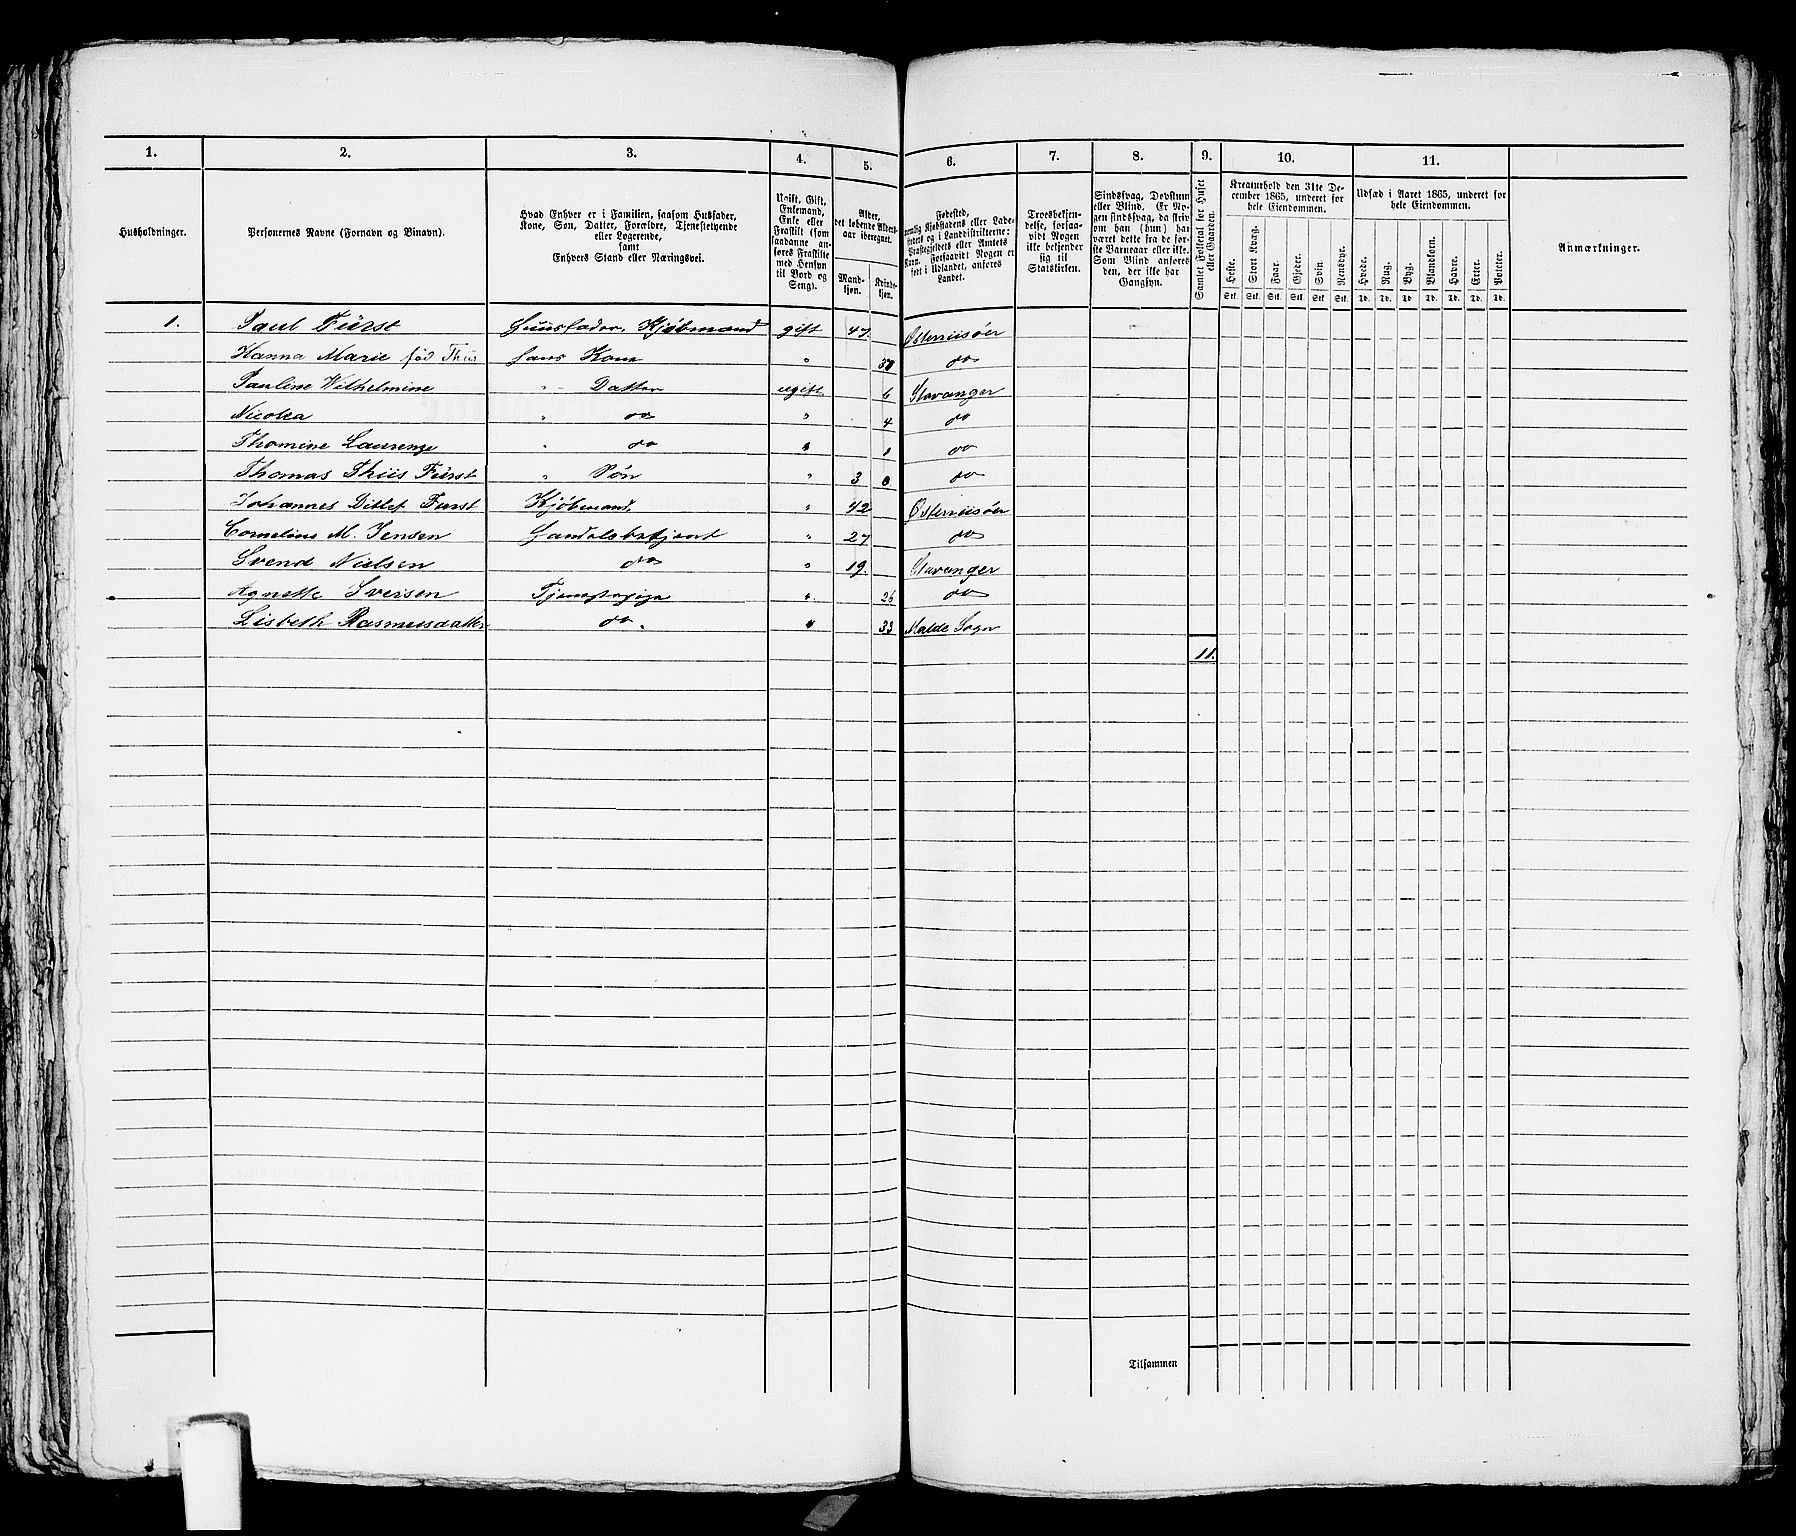 1. 2. 3. 4. 5. 6. 7. 8. 9. 10. 11.
Husholdninger.
Personernes Navne (Fornavn og Binavn).
Hvad Enhver er i Familien, saasom Husfader,
Kone, Søn, Datter, Forældre, Tjenestetyende
eller Logerende,
samt
Enhvers Stand eller Næringsvei.
Ugift, Gift,
Enkemand,
Enke eller
Fraskilt (som
saadanne an-
føres Fraskilte
med Hensyn
til Bord og
Seng).
Alder,
det løbende Alders-
aar iberegnet.
Mand-
kjøn.
Kvinde-
kjøn.
Fødested,
nemlig Kjøbstadens eller Lade-
stedets og i Landdistrikterne:
Præstegjeldets eller Amtets
Navn. Forsaavidt Nogen er
født i Udlandet, anføres
Landet.
Troesbekjen-
delse, forsaa-
vidt Nogen
ikke bekjender
sig til
Statskirken.
Sindssvag, Døvstum
eller Blind. Er No-
gen sindssvag, da skriv
om han (hun) har
været dette fra de før-
ste Barneaar eller ikke.
Som Blind anføres
den, der ikke har
Gangsyn.
Samlet Folketal for Huset
eller Gaarden.
Kreaturhold den 31te De-
cember 1865, underet for
hele Eiendommen.
Heste. Stort Kvæg. Faar. Gjeder. Svin. Rensdyr.
Stk. Stk. Stk. Stk. Stk. Stk.
Udsæd i Aaret 1865, underet for
hele Eiendommen.
Hvede. Rug. Byg. Blandkorn. Havre. Erter. Poteter.
Td. Td. Td. Td. Td. Td. Td.
Anmærkninger.
1. Paul Fürst Huusfader, Kjøbmand gift 47. Østerriisøer
Hanna Marie fød Thiis hans Kone " do
Pauline Wilhelmine " Datter ugift 6 Stavanger
Nicolea " do " 4 do
Thomine Laurenze " do " 1 do
Thomas Thiis Fürst " Søn " 3 0 do
Johannes Ditlef Fürst Kjøbmand. " 42 Østerriisøer
Cornelius M. Jensen Handelsbetjent " 27 do
Svend Nielsen do " 19. Stavanger
Agnette Iversen Tjenestepige " 26 do
Lisbeth Rasmusdatter do. " 33 Malde Sogn
11.
Tilsammen